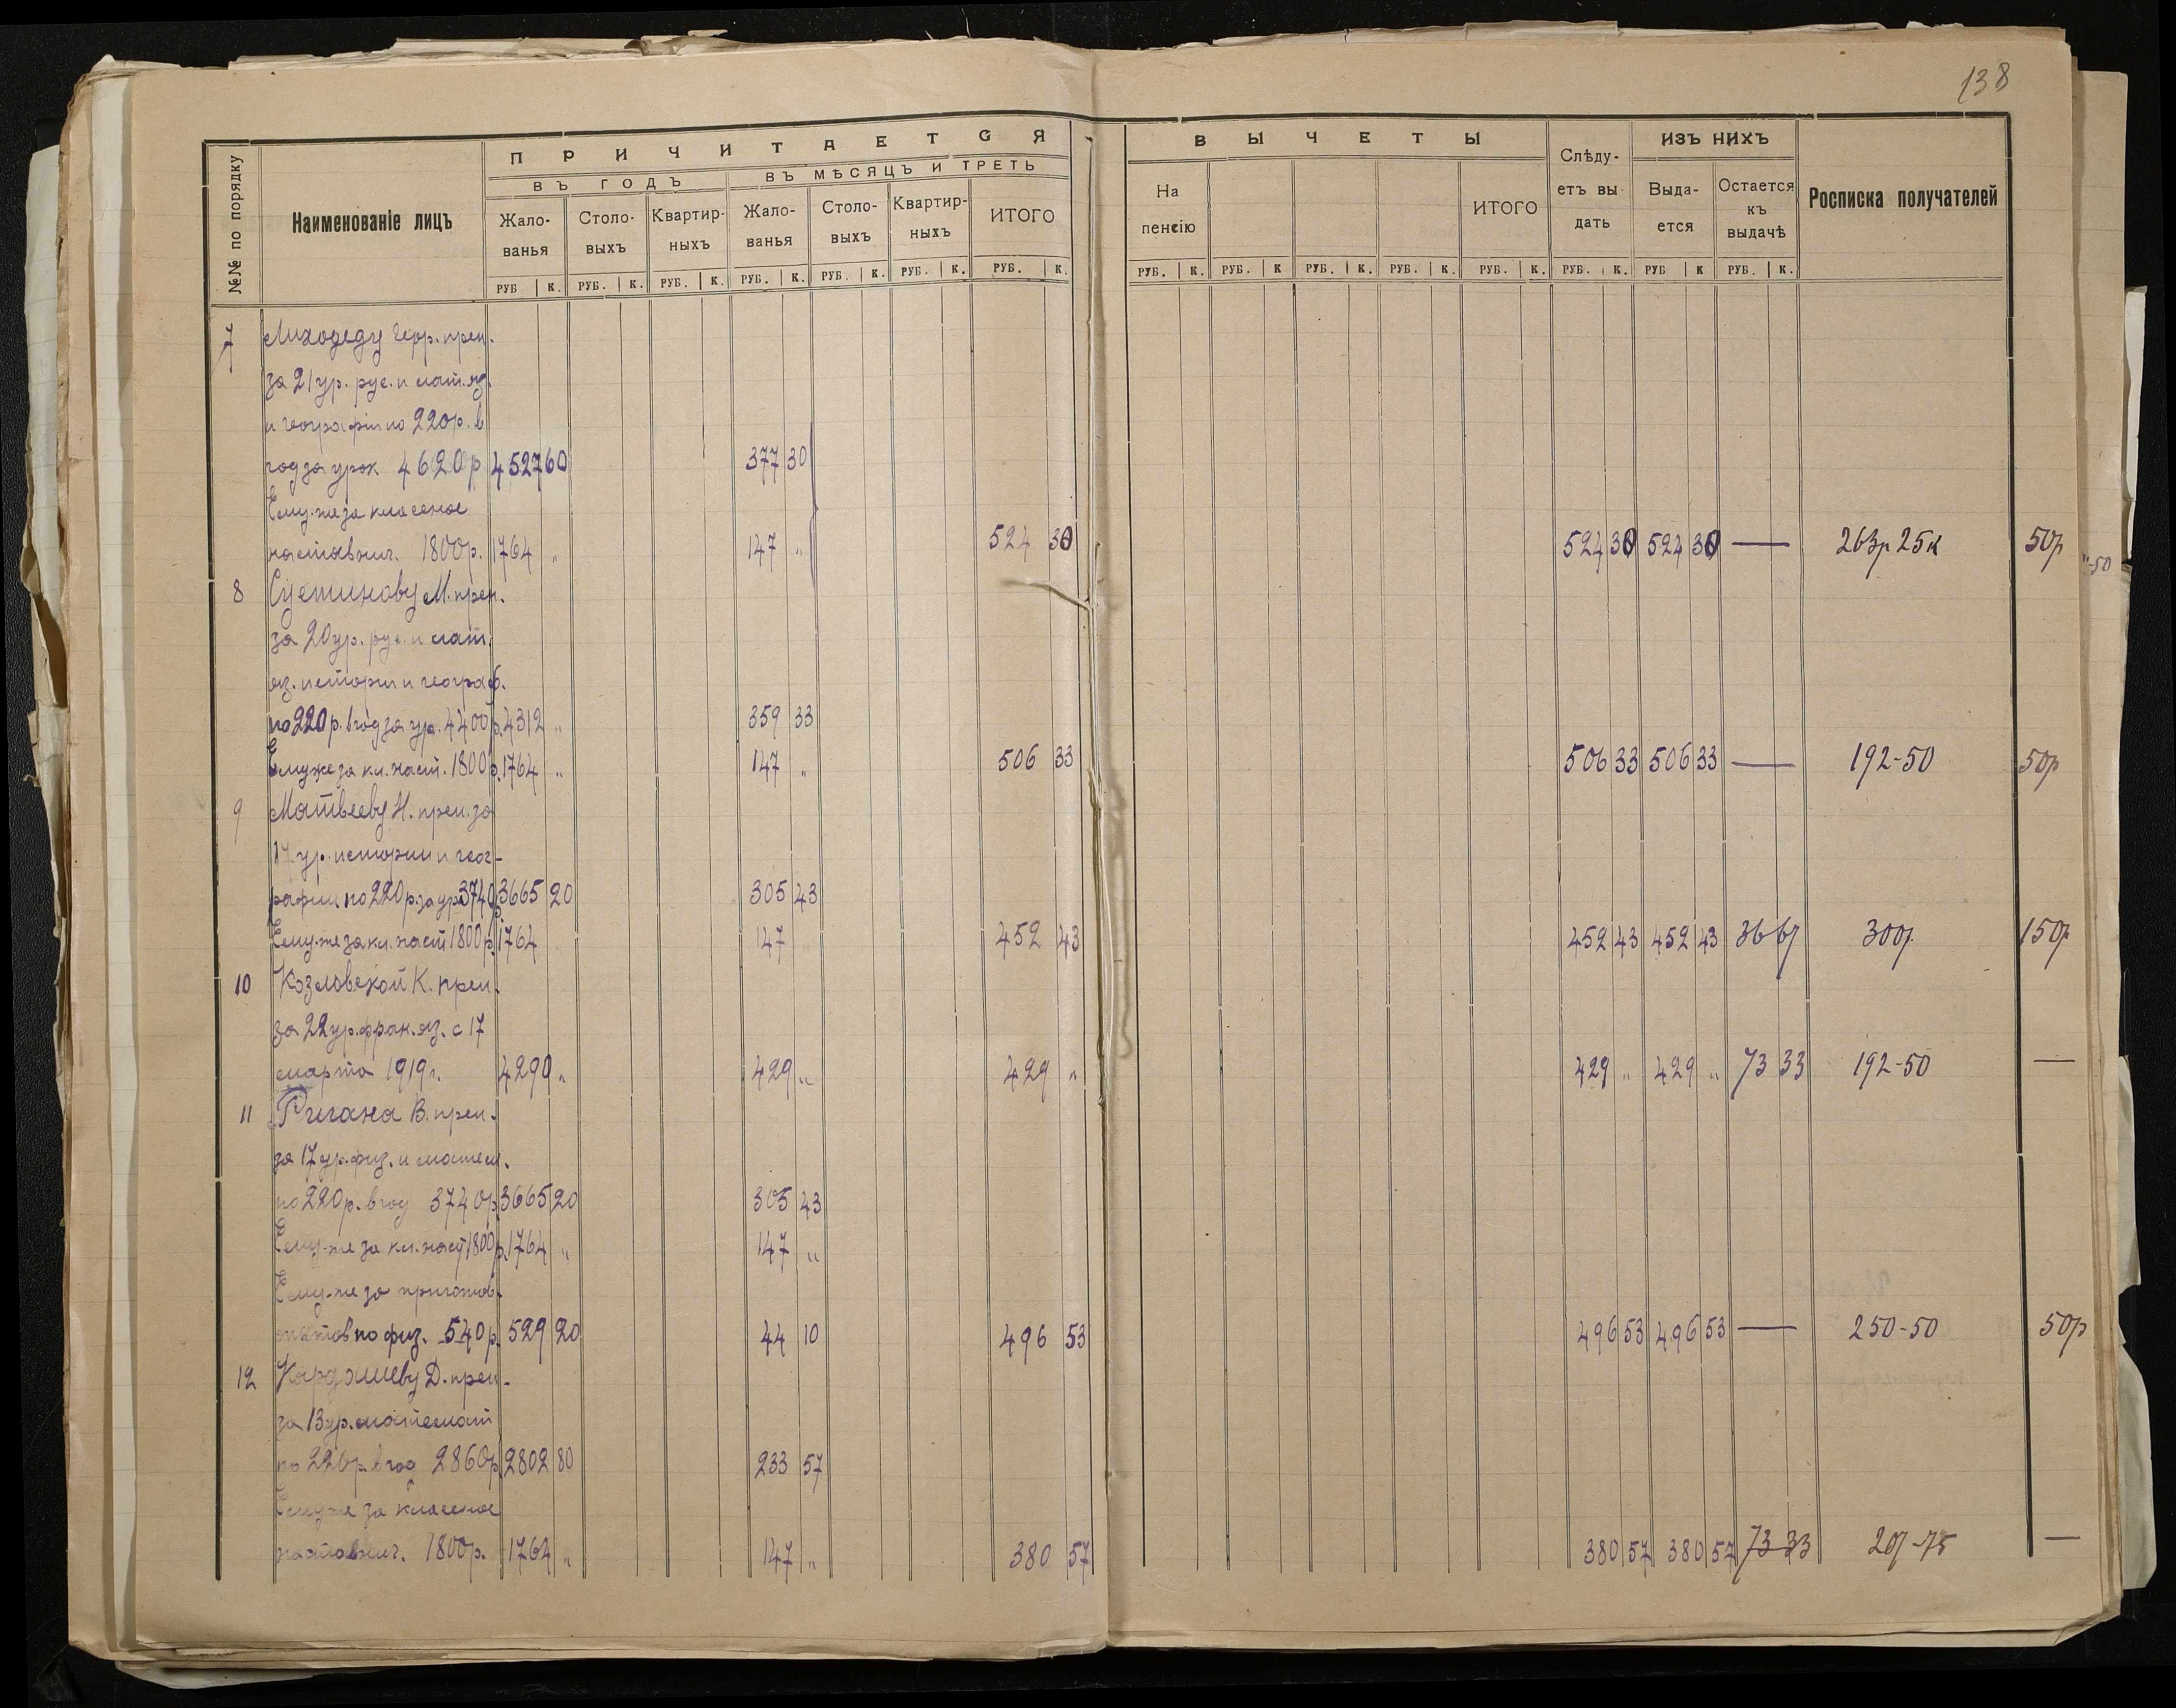 138
№№ по порядку
Наименованіе лицъ
ПРИЧИТАЕТСЯ
ВЪ ГОДЪ
ВЪ МѢСЯЦЪ И ТРЕТЬ
Жало-ванья
Столо-выхъ
Квартир-ныхъ
Жало-ванья
Столо-выхъ
Квартир-ныхъ
ИТОГО
РУБ К. РУБ. К. РУБ. К. РУБ. К. РУБ. К. РУБ. К. РУБ. К.
ВЫЧЕТЫ
На пенсію
ИТОГО
Слѣду-етъ вы-дать
ИЗЪ НИХЪ
Выда-ется
Остается къ выдачѣ
Росписка получателей
РУБ. К. РУБ. К РУБ. К. РУБ. К. РУБ. К. РУБ. К. РУБ К РУБ. К.
7 Лиходеду преп.
за 21 ур. рус. и лат. яз.
и географіи по 220р. в
год за урок 4620р 4527 60 377 30
Ему-же за классное
наставнич. 1800р. 1764 „ 147 „ 524 30 524 30 524 30 — 263р 25к 50р
„-50
8 М. преп.
за 20 ур. рус. и лат.
яз. истории и географ.
по 220р. в год за ур. 4400р. 4312 „ 359 33
Ему же за кл. наст. 1800р. 1764 „ 147 „ 506 33 506 33 506 33 — 192-50 50р
9 Матвееву Н. преп. за
17 ур. истории и геог-
рафии по 220р. за ур. 3740р. 3665 20 305 43
Ему-же за кл. наст 1800р. 1764 147 452 43 452 43 452 43 36 67 300р. 150р
10 Козловской К. преп.
за 22 ур. фран. яз. с 17
марта 1919г. 4290 „ 429 „ 429 „ 429 „ 429 „ 73 33 192-50 —
11 Ригана В. преп.
за 17 ур. физ. и матем.
по 220р. в год 3740р. 3665 20 305 43
Ему-же за кл. наст 1800р. 1764 „ 147 „
Ему-же за приготов.
опытов по физ. 540р. 529 20 44 10 496 53 496 53 496 53 — 250-50 50р
12 Кардашеву Д. преп.
за 13 ур. математ
по 220р. в год 2860р. 2802 80 233 57
Ему же за классное
наставнич. 1800р. 1764 „ 147 „ 380 57 380 57 380 57 73 33 —